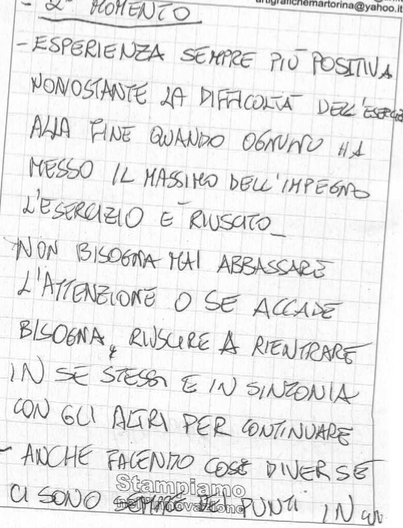 artigrafichemartorina@yahoo.it
- 2° MOMENTO
- ESPERIENZA SEMPRE PIÙ POSITIVA
NONOSTANTE LA DIFFICOLTÀ DELL'
ALLA FINE QUANDO OGNUNO HA
MESSO IL MASSIMO DELL'IMPEGNO
L'ESERCIZIO È RIUSCITO
NON BISOGNA MAI ABBASSARE
L'ATTENZIONE O SE ACCADE
BISOGNA RIUSCIRE A RIENTRARE
IN SE STESSI E IN SINTONIA
CON GLI ALTRI PER CONTINUARE
- ANCHE FACENDO COSE DIVERSE
Stampiamo
CI SONO SEMPRE DEI PUNTI IN